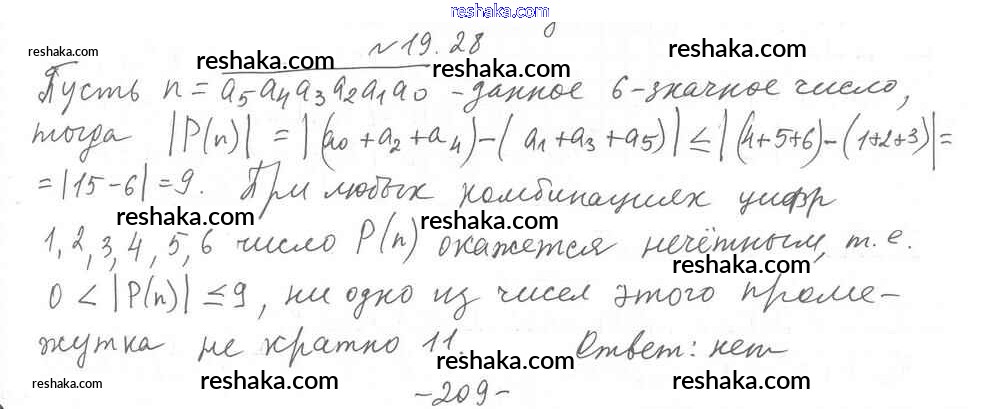 reshaka.com
№19.28
reshaka.com reshaka.com reshaka.com
Пусть n = a5a4a3a2a1a0 - данное 6-значное число,
reshaka.com
тогда |P(n)| = |(a0+a2+a4)-(a1+a3+a5)| ≤ |(4+5+6)-(1+2+3)| =
= |15-6| = 9. При любых комбинациях цифр
reshaka.com reshaka.com reshaka.com
1, 2, 3, 4, 5, 6 число P(n) окажется нечётным, т.е.
reshaka.com
0 < |P(n)| ≤ 9, ни одно из чисел этого проме-
жутка не кратно 11. Ответ: нет
reshaka.com
reshaka.com reshaka.com reshaka.com
-209-